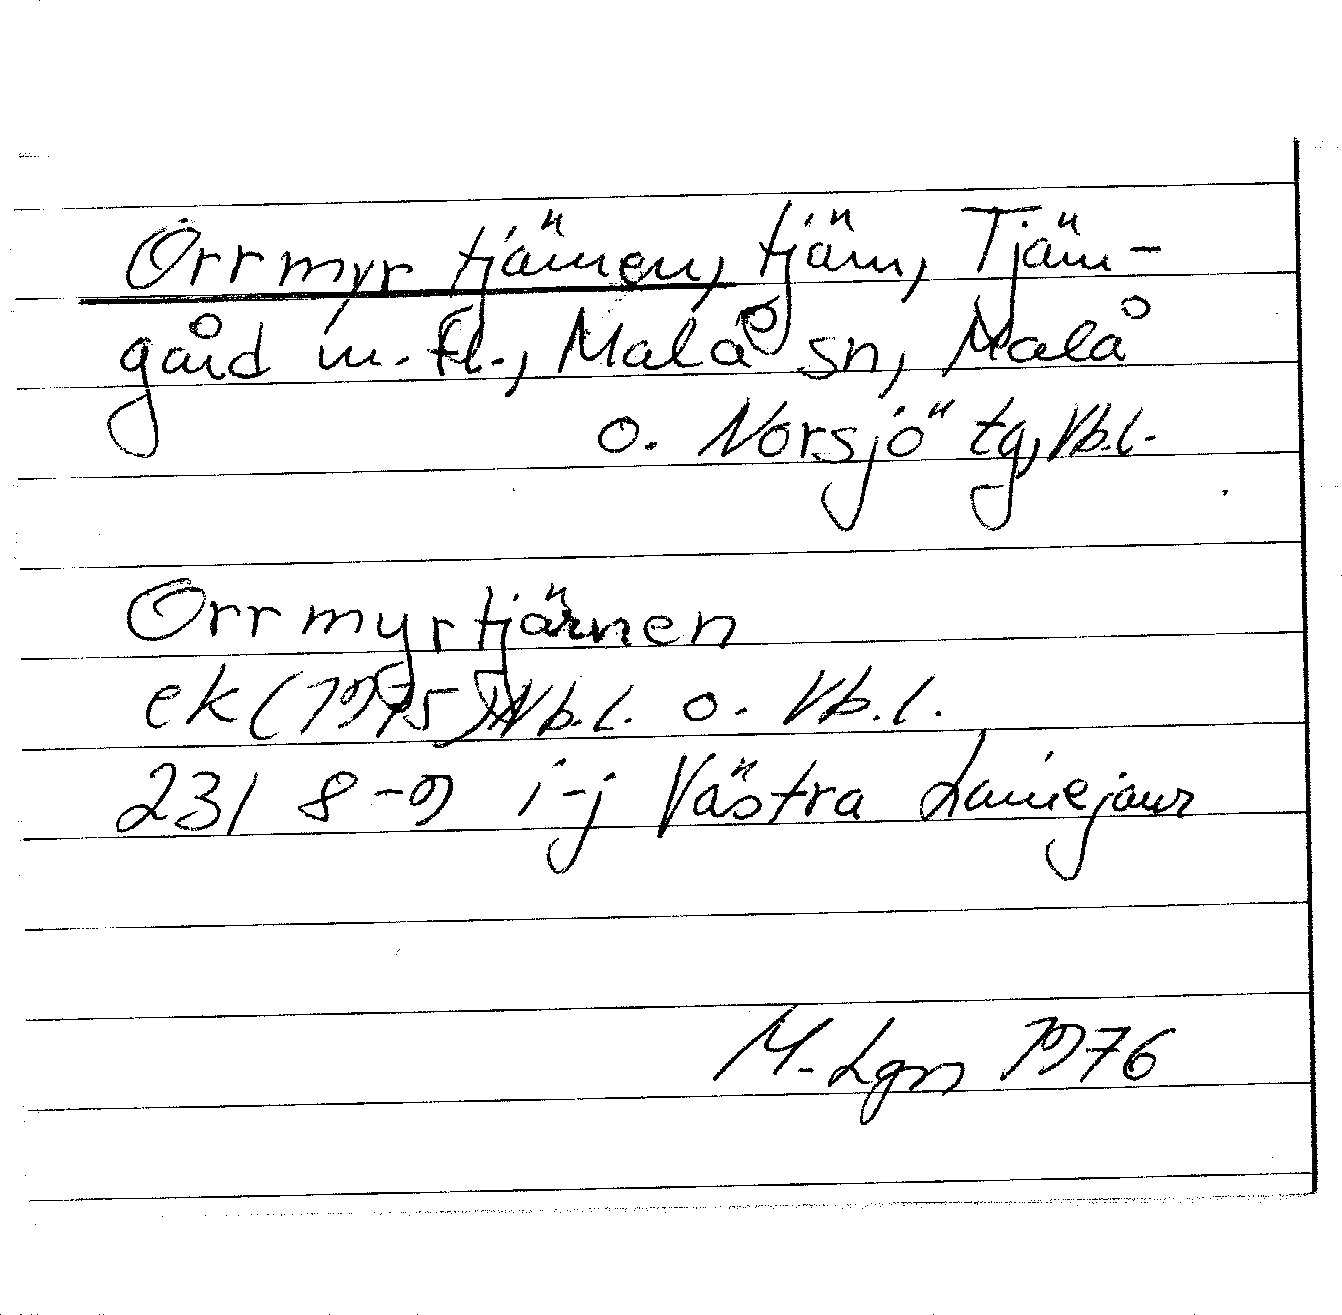 Orrmyrtjärnen, tjärn, Tjärn-
gård m.fl., Malå sn, Malå
o. Norsjö tg, Vb.l.
Orrmyrtjärnen
ek (1975) Nb.l. o. Vb.l.
231 8-9 i-j Västra Lainejaur
M. Lgn 1976